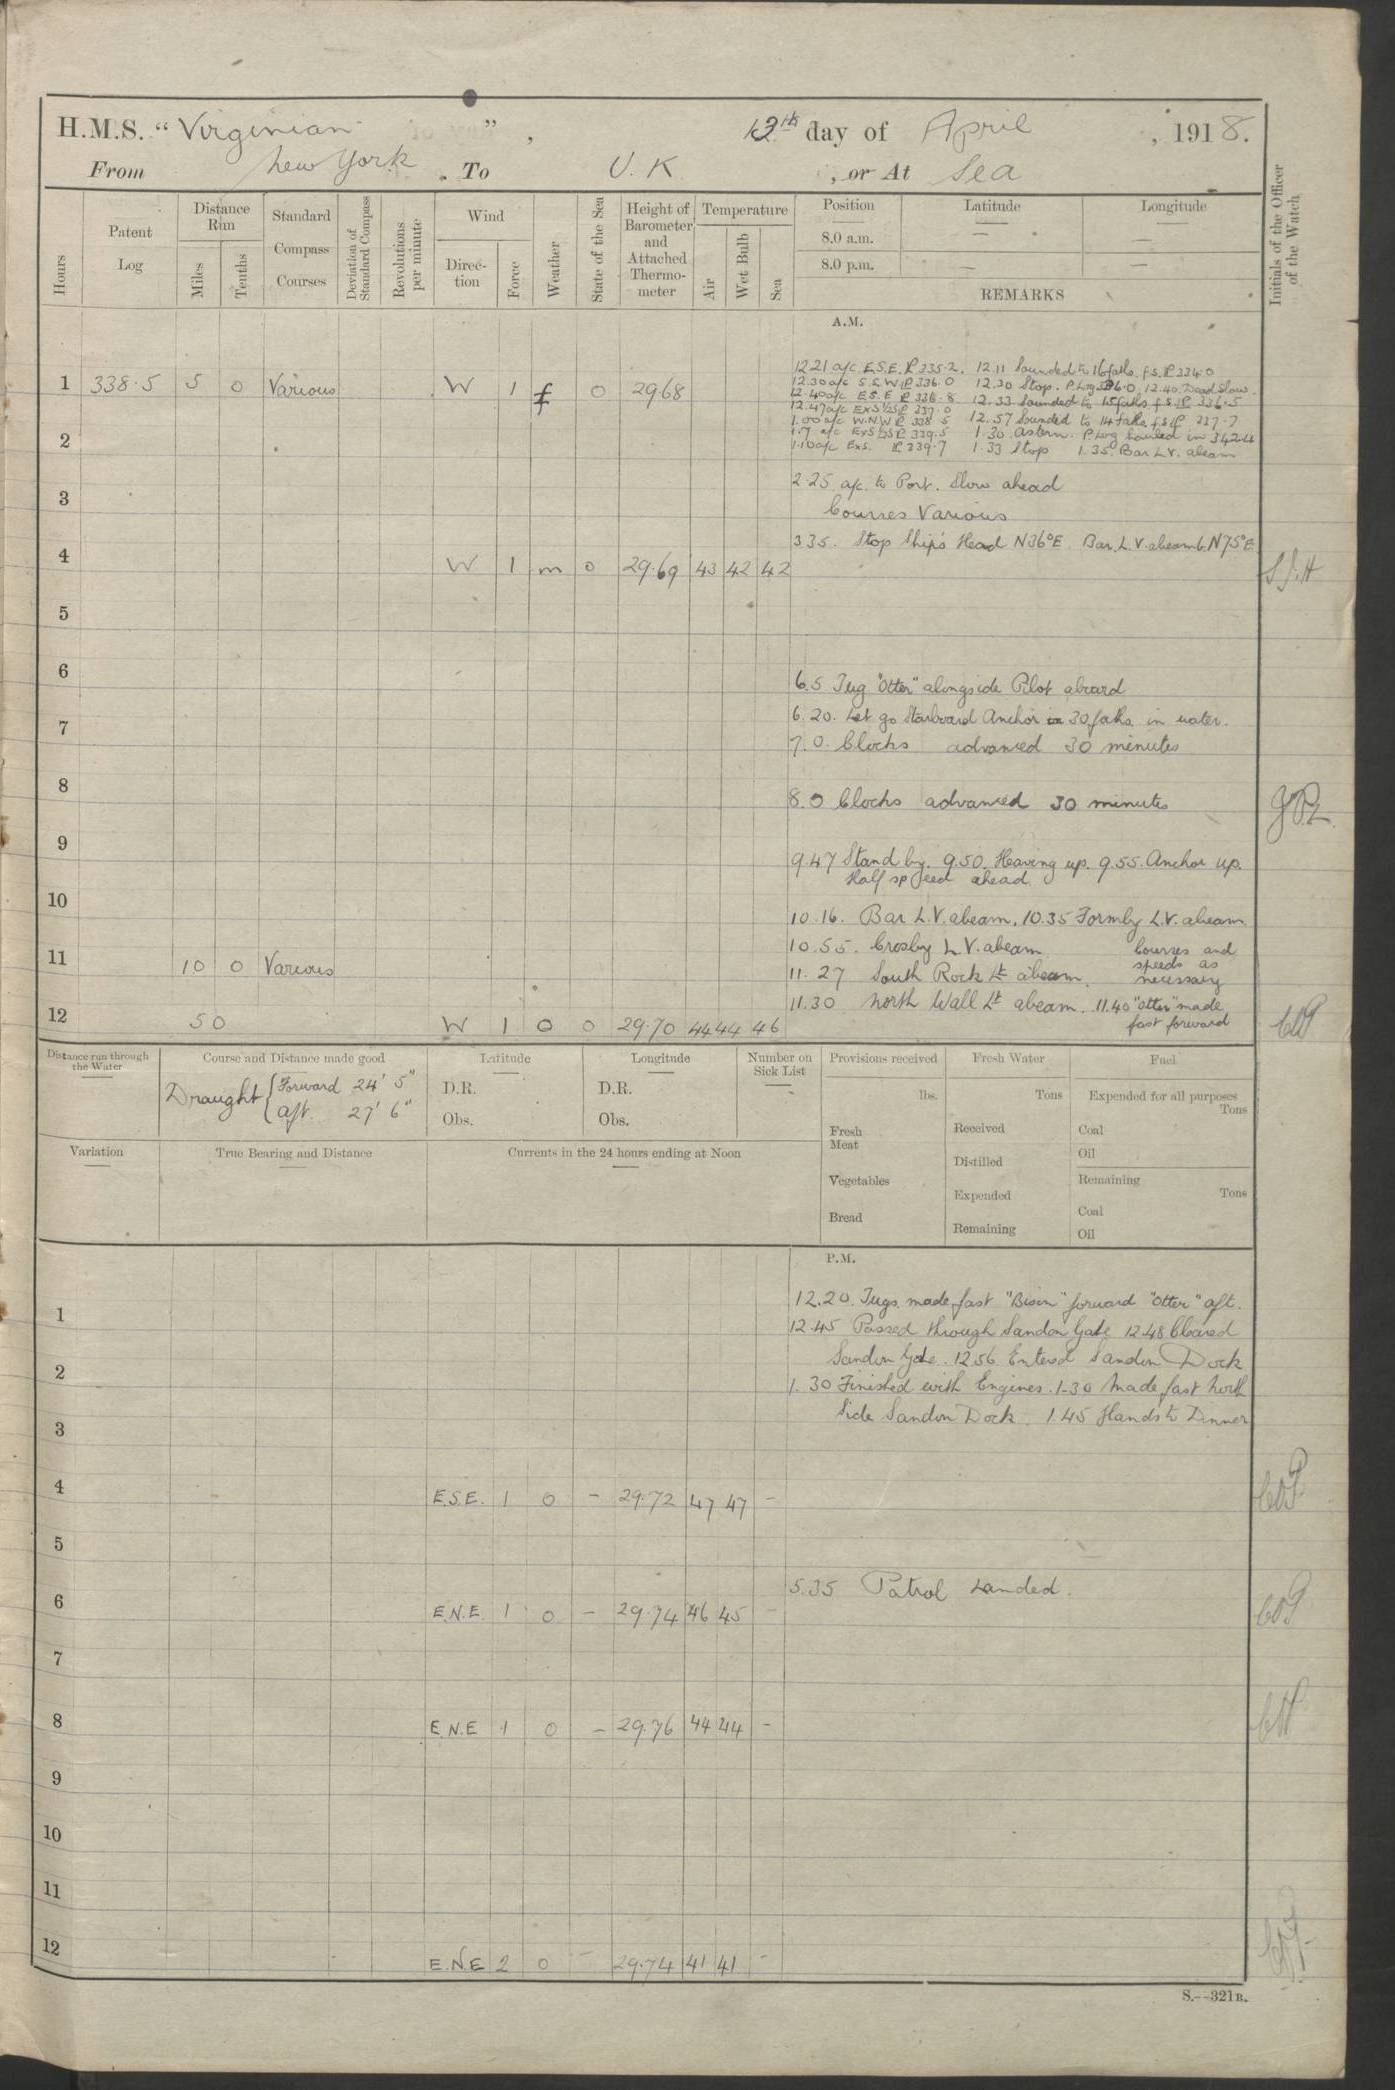 H.M.S. “Virginian” , 13th day of April , 1918.
From New York . To U.K , or At Sea
Hours
Patent Log
Distance Run
Miles
Tenths
Standard Compass Courses
Deviation of Standard Compass
Revolutions per minute
Wind
Direction
Force
Weather
State of the Sea
Height of Barometer and Attached Thermometer
Temperature
Air
Wet Bulb
Sea
Position Latitude Longitude
8.0 a.m. — —
8.0 p.m. — —
REMARKS
Initials of the Officer of the Watch
A.M.
12.21 a/c E.S.E. PL 335.2. 12.11 Sounded to 16 faths. f.s. PL 334.0
12.30 a/c S.S.W PL 336.0 12.30 Stop. P.Log 336.0, 12.40 Dead Slow
1 338.5 5 0 Various W 1 f 0 29.68
12.40 a/c E.S.E PL 336.8 12.33 Sounded to 15 faths f.s. PL 336.5
12.47 a/c ExS½S PL 337.0 12.57 Sounded to 14 faths f.s PL 337.7
1.00 a/c W.N.W PL 338.5 1.30 astern. P.Log hauled in 342.4
1.7 a/c ExS½S PL 339.5
2
1.10 a/c ExS. PL 339.7 1.33 Stop 1.35. Bar L.V. abeam
2.25 a/c to Port. Slow ahead
3
Courses Various
3.35. Stop Ship's Head N36°E. Bar L.V. abeam N75°E
4 W 1 m 0 29.69 43 42 42
5
6
6.5 Tug "Otter" alongside Pilot aboard
6.20. Let go Starboard Anchor in 30 faths in water.
7
7.0. Clocks advanced 30 minutes
8
8.0 Clocks advanced 30 minutes
9
9.47 Stand by. 9.50. Heaving up. 9.55. Anchor up.
Half speed ahead.
10
10.16. Bar L.V. abeam, 10.35 Formby L.V. abeam
10.55. Crosby L.V. abeam Courses and speeds as necessary
11 10 0 Various
11.27 South Rock Lt abeam.
11.30 North Wall Lt abeam. 11.40 "Otter" made fast forward
12 50 W 1 0 0 29.70 44 44 46
Distance run through the Water
Course and Distance made good
Draught { Forward 24' 5"
aft. 27' 6"
Latitude
D.R.
Obs.
Longitude
D.R.
Obs.
Number on Sick List
Provisions received
lbs.
Fresh Meat
Vegetables
Bread
Fresh Water
Tons
Received
Distilled
Expended
Remaining
Fuel
Expended for all purposes
Tons
Coal
Oil
Remaining
Tons
Coal
Oil
Variation
True Bearing and Distance
Currents in the 24 hours ending at Noon
P.M.
1
12.20. Tugs made fast "Bison" forward "Otter" aft.
12.45 Passed through Sandon Gate 12.48 Cleared
Sandon Gate. 12.56 Entered Sandon Dock
2
1.30 Finished with Engines. 1.30 Made fast North
Side Sandon Dock. 1.45 Hands to Dinner
3
4 E.S.E. 1 0 – 29.72 47 47 –
5
5.35 Patrol Landed.
6 E.N.E. 1 0 – 29.74 46 45 –
7
8 E.N.E 1 0 – 29.76 44 44 –
9
10
11
12 E.N.E 2 0 – 29.74 41 41 –
S.—321B.